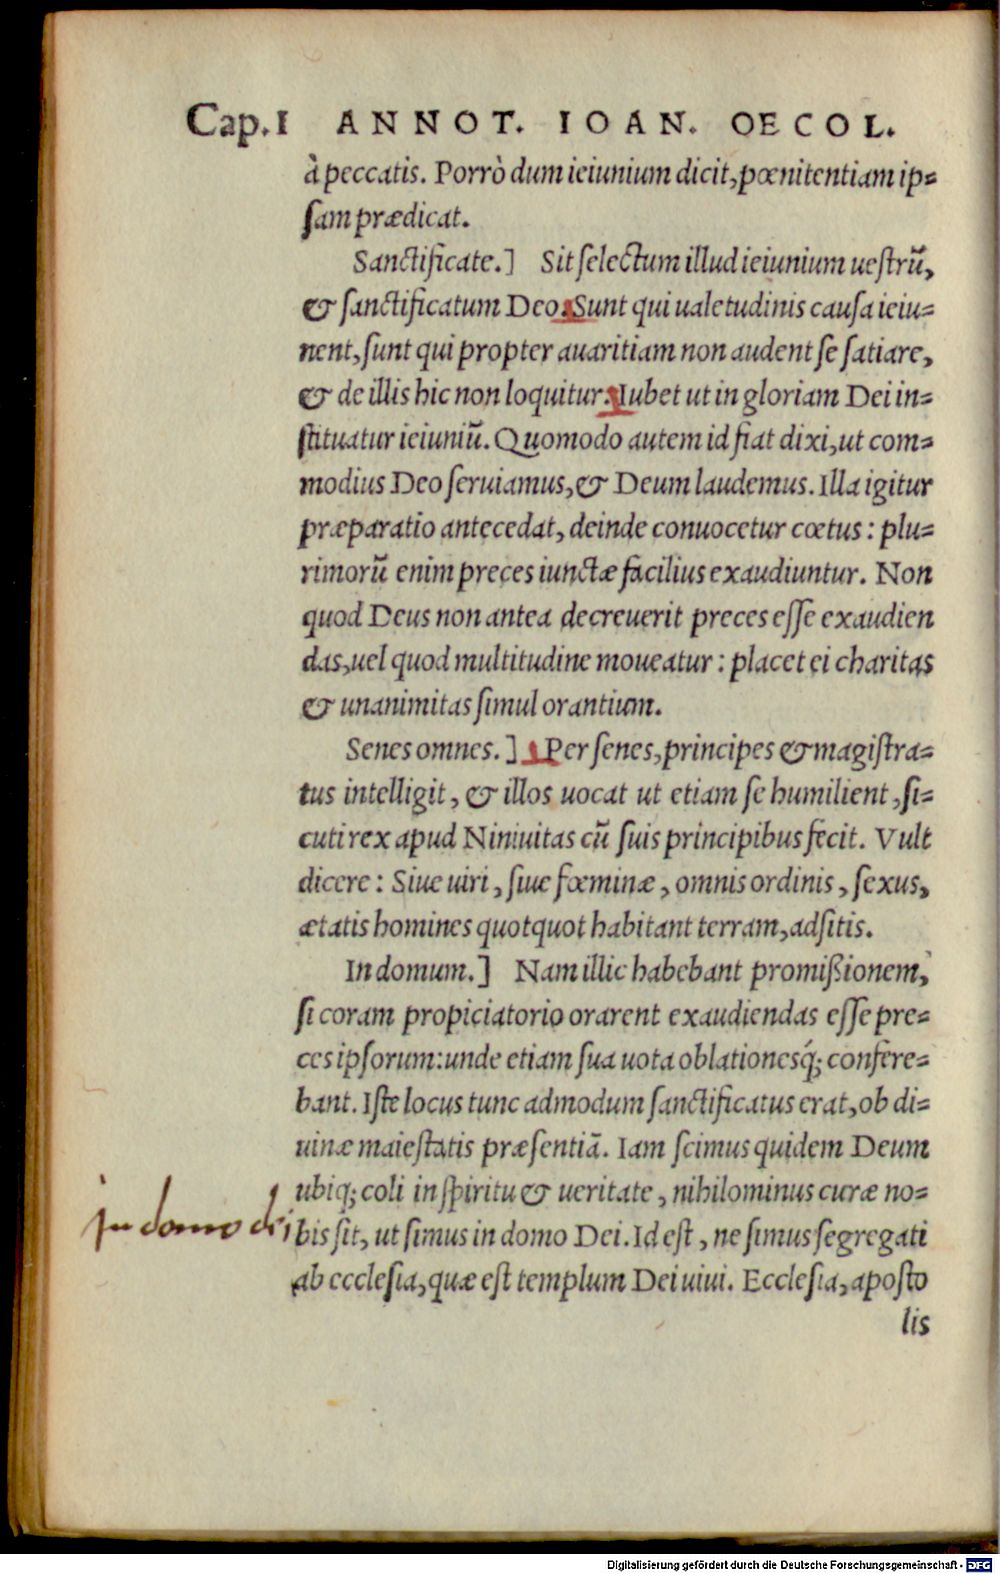 Cap.I ANNOT. IOAN. OECOL.
à peccatis. Porrò dum ieiunium dicit, pœnitentiam ip=
ſam prædicat.
Sanctificate.] Sit ſelectum illud ieiunium ueſtrũ,
& ſanctificatum Deo. Sunt qui ualetudinis cauſa ieiu=
nent, ſunt qui propter auaritiam non audent ſe ſatiare,
& de illis hic non loquitur. Iubet ut in gloriam Dei in=
ſtituatur ieiuniũ. Quomodo autem id fiat dixi, ut com=
modius Deo ſeruiamus, & Deum laudemus. Illa igitur
præparatio antecedat, deinde conuocetur cœtus: plu=
rimorũ enim preces iunctæ facilius exaudiuntur. Non
quod Deus non antea decreuerit preces eſſe exaudien
das, uel quod multitudine moueatur: placet ei charitas
& unanimitas ſimul orantium.
Senes omnes.] Per ſenes, principes & magiſtra=
tus intelligit, & illos uocat ut etiam ſe humilient, ſi=
cuti rex apud Niniuitas cũ ſuis principibus fecit. Vult
dicere: Siue uiri, ſiue fœminæ, omnis ordinis, ſexus,
ætatis homines quotquot habitant terram, adſitis.
In domum.] Nam illic habebant promißionem,
ſi coram propiciatorio orarent exaudiendas eſſe pre=
ces ipſorum: unde etiam ſua uota oblationesq́; confere=
bant. Iſte locus tunc admodum ſanctificatus erat, ob di=
uinæ maieſtatis præſentiã. Iam ſcimus quidem Deum
ubiq; coli in ſpiritu & ueritate, nihilominus curæ no=
in domo dei
bis ſit, ut ſimus in domo Dei. Id eſt, ne ſimus ſegregati
ab eccleſia, quæ eſt templum Dei uiui. Eccleſia, apoſto
lis
Digitalisierung gefördert durch die Deutsche Forschungsgemeinschaft - DFG